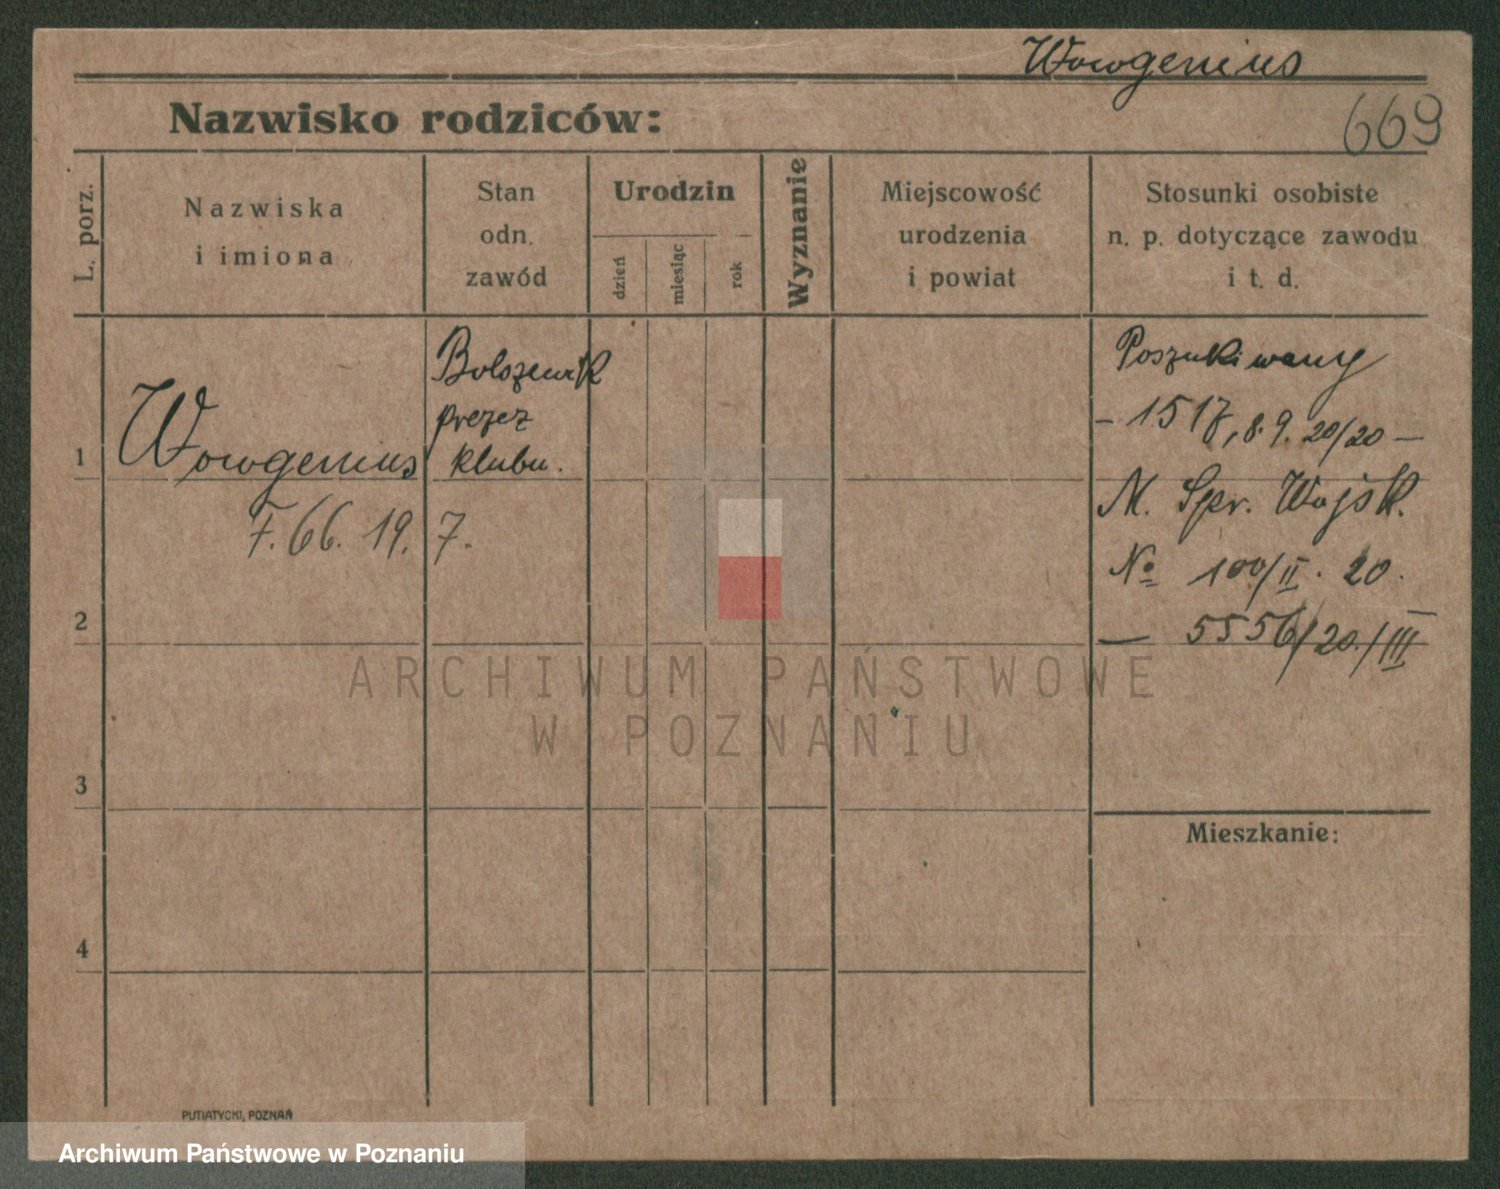 Wowgenius
669
Nazwisko rodziców:
L. porz.
Nazwiska
i imiona
Stan
odn.
zawód
Urodzin
dzień
miesiąc
rok
Wyznanie
Miejscowość
urodzenia
i powiat
Stosunki osobiste
n. p. dotyczące zawodu
i t. d.
1
Wowgenius
F. 66. 19. 7.
Bolszewik
prezez
klubu.
Poszukiwany
– 1517, 8. 9. 20/20 –
M. Spr. Wojsk.
№ 100/II. 20.
— 5556/20./III
2
3
4
Mieszkanie:
ARCHIWUM PAŃSTWOWE
W POZNANIU
PUTIATYCKI, POZNAŃ
Archiwum Państwowe w Poznaniu